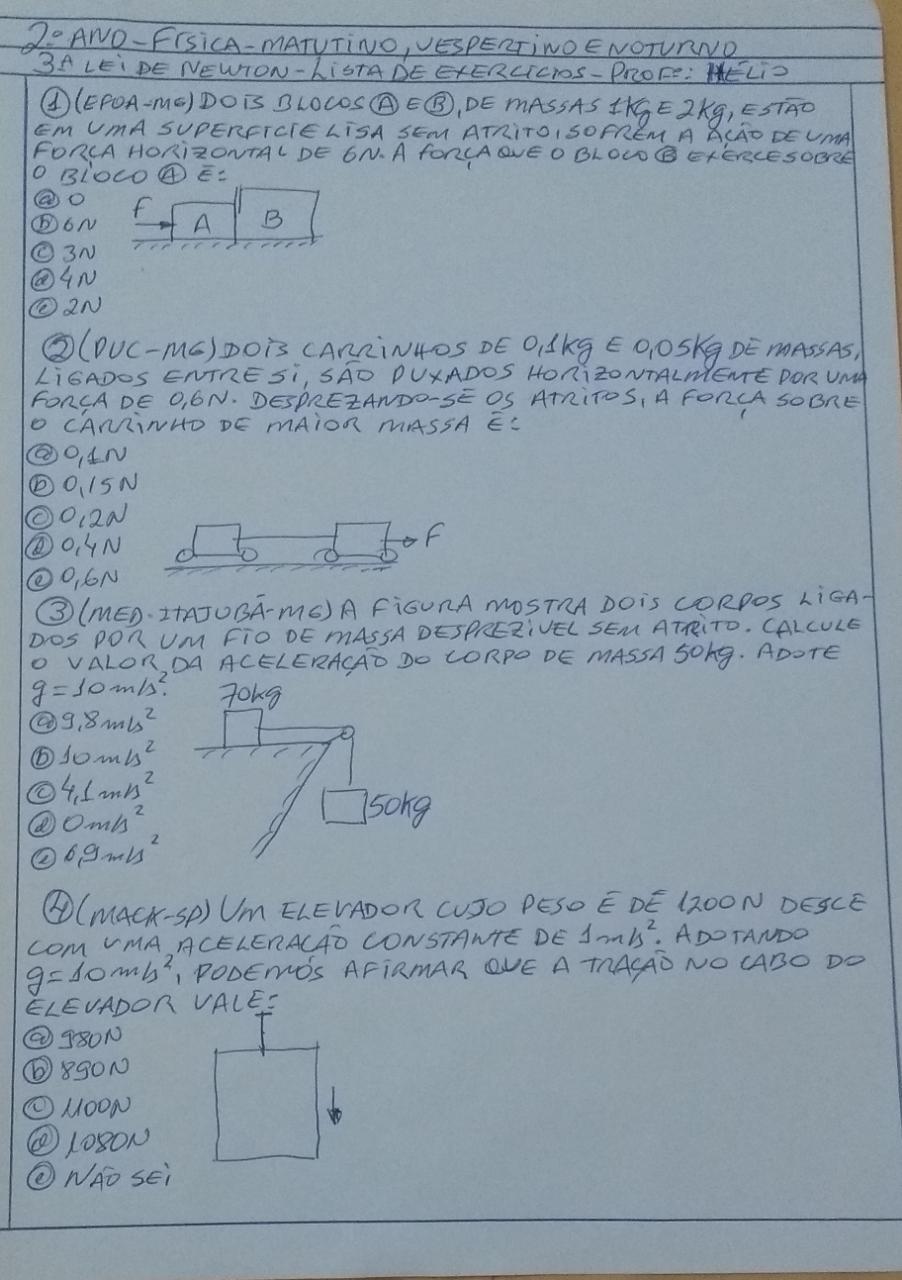 2º ANO - FÍSICA - MATUTINO, VESPERTINO E NOTURNO
3ª LEI DE NEWTON - LISTA DE EXERCÍCIOS - PROFº: HÉLIO
① (EPOA-MG) DOIS BLOCOS Ⓐ E Ⓑ, DE MASSAS 1KG E 2KG, ESTÃO
EM UMA SUPERFÍCIE LISA SEM ATRITO, SOFREM A AÇÃO DE UMA
FORÇA HORIZONTAL DE 6N. A FORÇA QUE O BLOCO Ⓑ EXERCE SOBRE
O BLOCO Ⓐ É:
ⓐ 0
ⓑ 6N
ⓒ 3N
ⓓ 4N
ⓔ 2N
F
A
B
② (PUC-MG) DOIS CARRINHOS DE 0,1kg E 0,05kg DE MASSAS,
LIGADOS ENTRE SI, SÃO PUXADOS HORIZONTALMENTE POR UMA
FORÇA DE 0,6N. DESPREZANDO-SE OS ATRITOS, A FORÇA SOBRE
O CARRINHO DE MAIOR MASSA É:
ⓐ 0,1N
ⓑ 0,15N
ⓒ 0,2N
ⓓ 0,4N
ⓔ 0,6N
F
③ (MED. ITAJUBÁ-MG) A FIGURA MOSTRA DOIS CORPOS LIGA-
DOS POR UM FIO DE MASSA DESPREZÍVEL SEM ATRITO. CALCULE
O VALOR DA ACELERAÇÃO DO CORPO DE MASSA 50kg. ADOTE
g = 10 m/s².
ⓐ 9,8 m/s²
ⓑ 10 m/s²
ⓒ 4,1 m/s²
ⓓ 0 m/s²
ⓔ 6,9 m/s²
70kg
50kg
④ (MACK-SP) UM ELEVADOR CUJO PESO É DE 1200N DESCE
COM UMA ACELERAÇÃO CONSTANTE DE 1 m/s². ADOTANDO
g = 10 m/s², PODEMOS AFIRMAR QUE A TRAÇÃO NO CABO DO
ELEVADOR VALE:
ⓐ 980N
ⓑ 890N
ⓒ 1100N
ⓓ 1080N
ⓔ NÃO SEI